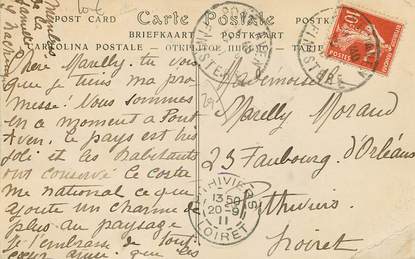 POST CARD Carte Postale POSTKARTE
BRIEFKAART POSTKAART
CARTOLINA POSTALE - ОТКРЫТОЕ ПИСЬМО
Chère Marelly. tu vois
que je tiens ma pro
messe. Nous sommes
en ce moment à Pont
Aven. Le pays est très
joli et les habitants
ont conservé le costu
me national ce que
ajoute un charme de
plus au paysage
Je t'embrasse de tout
cœur ainsi que les
membres
de la
famille
Mademoiselle
Marelly Morand
25 Faubourg d'Orléans
Pithiviers
Loiret
FINISTERE
10
FINISTERE
PITHIVIERS
13 50
20-9
11
LOIRET